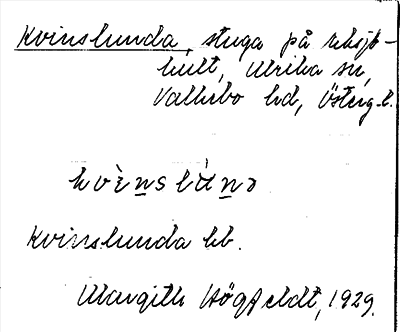 Kvinslunda, stuga på uksjö-
hult, Ulrika sn,
Vallebo hd, Österg. l.
kvinslunda
Kvinslunda hb.
Margith Högfeldt, 1929.